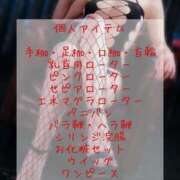 個人アイテム
手枷・足枷・口枷・首輪
乳首用ローター
ピンクローター
ゼビアローター
エネマグラローター
ペニバン
バラ鞭・ヘラ鞭
シリンジ浣腸
お化粧セット
ウイッグ
ワンピース